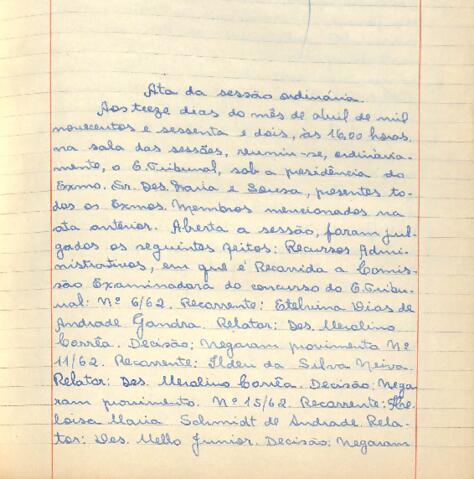 Ata da sessão ordinária.
Aos treze dias do mês de abril de mil
novecentos e sessenta e dois, às 16.00 horas,
na sala das sessões, reuniu-se, ordinària-
mente, o E. Tribunal, sob a presidência do
Exmo. Sr. Des. Faria e Sousa, presentes to-
dos os Exmos. Membros mencionados na
ata anterior. Aberta a sessão, foram jul-
gados os seguintes feitos: Recursos Admi-
nistrativos, em que é Recorrida a Comis-
são Examinadora do concurso do E. Tribu-
nal: Nº 6/62. Recorrente: Etelvina Dias de
Andrade Gandra. Relator: Des. Merolino
Corrêa. Decisão: Negaram provimento Nº
11/62. Recorrente: Ilden da Silva Neiva.
Relator: Des. Merolino Corrêa. Decisão: Nega
ram provimento. Nº 15/62. Recorrente: He-
loisa Maria Schmidt de Andrade. Rela-
tor: Des. Mello Junior. Decisão: Negaram